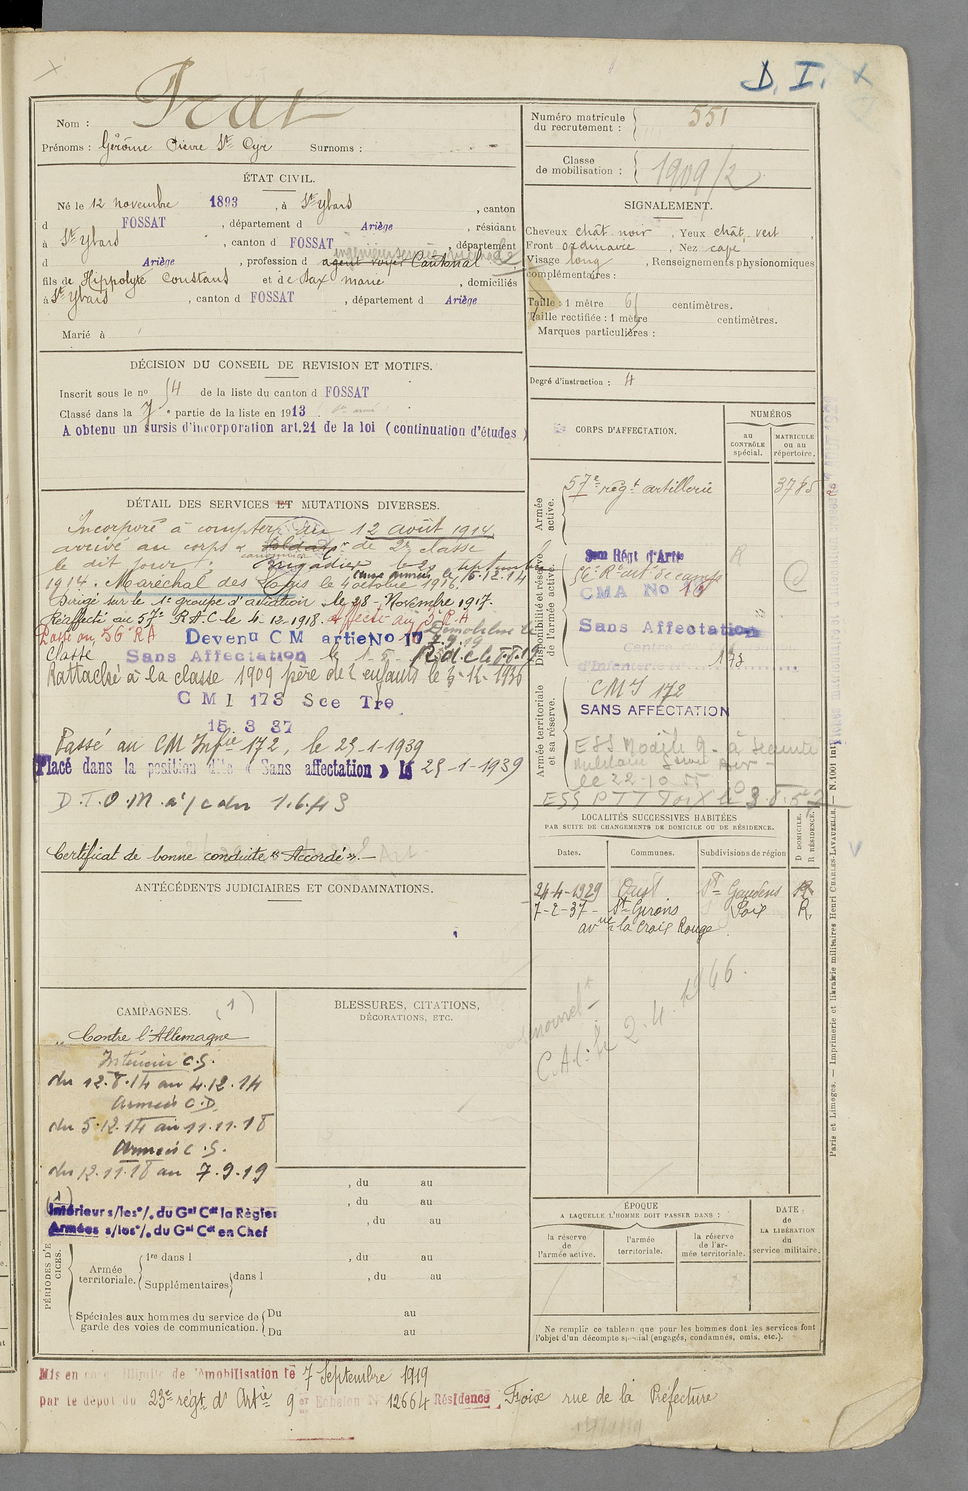 D. I.
Nom : Prat
Prénoms : Gérôme Pierre St Cyr Surnoms :
ÉTAT CIVIL.
Né le 12 novembre 1893, à St Ybars, canton
d FOSSAT, département d Ariège, résidant
à St Ybars, canton d FOSSAT, département
d Ariège, profession d agent voyer Cantonal
fils de Hippolyte Constans et de Dax Marie, domiciliés
à St Ybars, canton d FOSSAT, département d Ariège
Marié à
DÉCISION DU CONSEIL DE REVISION ET MOTIFS.
Inscrit sous le no 54 de la liste du canton d FOSSAT
Classé dans la 7 e partie de la liste en 1913.
A obtenu un sursis d'incorporation art.21 de la loi (continuation d'études)
DÉTAIL DES SERVICES ET MUTATIONS DIVERSES.
Incorporé à compter du 12 août 1914,
arrivé au corps et soldat de 2e classe
le dit jour. Brigadier le 20 septembre
1914. Maréchal des Logis le 4 octobre 1916.
Dirigé sur le 1e groupe d'aviation le 28 Novembre 1917.
Réaffecté au 57e R.A.C le 4-12-1918. Affecté au
Passé au 56 RA Devenu C M artie No 17
Classé Sans Affectation le 1-5-
Rattaché à la classe 1909 père de 2 enfants le 3-12-1936
C M I 173 Sce Tre
15 3 37
Passé au CM Infie 172, le 29-1-1939
Placé dans la position dite « Sans affectation » le 29-1-1939
D.T.O.M. à/c du 1.6.43
Certificat de bonne conduite « Accordé ».-
ANTÉCÉDENTS JUDICIAIRES ET CONDAMNATIONS.
CAMPAGNES. (1)
Contre l'Allemagne
Intérieur C.S.
du 12.8.14 au 4.12.14
Armées C.D.
du 5.12.14 au 11.11.18
Armées C.S.
du 12.11.18 au 7.9.19
(1)
Intérieur s/les o/. du Gal Cdt la Région
Armées s/les o/. du Gal Cdt en Chef
BLESSURES, CITATIONS,
DÉCORATIONS, ETC.
, du au
, du au
, du au
PÉRIODES D'EXERCICES.
Armée territoriale.
1re dans l , du au
Supplémentaires dans l , du au
Spéciales aux hommes du service de
garde des voies de communication.
Du au
Du au
Mis en congé illimité de démobilisation le 7 Septembre 1919
par le dépôt du 23e régt d'Artie 9e Echelon No 12664 Résidence : Foix rue de la Préfecture
Numéro matricule
du recrutement : 551
Classe
de mobilisation : 1909/2
SIGNALEMENT.
Cheveux chât noir, Yeux chât vert
Front ordinaire, Nez cave
Visage long, Renseignements physionomiques
complémentaires :
Taille : 1 mètre 61 centimètres.
Taille rectifiée : 1 mètre centimètres.
Marques particulières :
Degré d'instruction : 4
CORPS D'AFFECTATION.
NUMÉROS
au
CONTRÔLE
spécial.
MATRICULE
ou au
répertoire.
Armée
active.
57e régt artillerie 3785
Disponibilité et réserve
de l'armée active.
Régt d'Artie
CMA No 16
Sans Affectation
d'Infanterie 173
Armée territoriale
et sa réserve.
CMI 172
SANS AFFECTATION
ESS Modèle 9 - à Sécurité
militaire
le 22-10-55
ESS PTT Foix
LOCALITÉS SUCCESSIVES HABITÉES
PAR SUITE DE CHANGEMENTS DE DOMICILE OU DE RÉSIDENCE.
Dates. Communes. Subdivisions de région
D DOMICILE.
R RÉSIDENCE.
24-4-1929 Oust St Gaudens R
7-2-37- St Girons Foix R.
avue de la Croix Rouge
C.A.C. le 2.4.1946.
ÉPOQUE
A LAQUELLE L'HOMME DOIT PASSER DANS :
la réserve
de
l'armée active.
l'armée
territoriale.
la réserve
de l'ar-
mée territoriale.
DATE
de
LA LIBÉRATION
du
service militaire.
Ne remplir ce tableau que pour les hommes dont les services font
l'objet d'un décompte spécial (engagés, condamnés, omis, etc.).
Paris et Limoges. — Imprimerie et librairie militaires Henri CHARLES-LAVAUZELLE. — N. 1001 int.